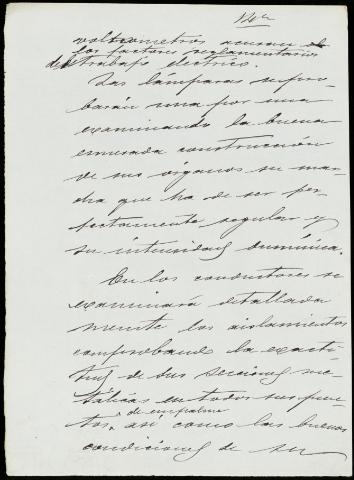 12ª
voltiometros acusan de
los factores reglamentarios
del trabajo electrico.
Las lámparas se pro-
barán una por una
examinando la buena
esmerada construcción
de sus órganos su mar-
cha que ha de ser per-
fectamente regular y
su intensidad lumínica.
En los conductores se
examinará detallada
mente los aislamientos
comprobando la exacti-
tud de sus secciones me-
tálicas en todos sus pun-
de empalme
tos, así como las buenas
condiciones de su